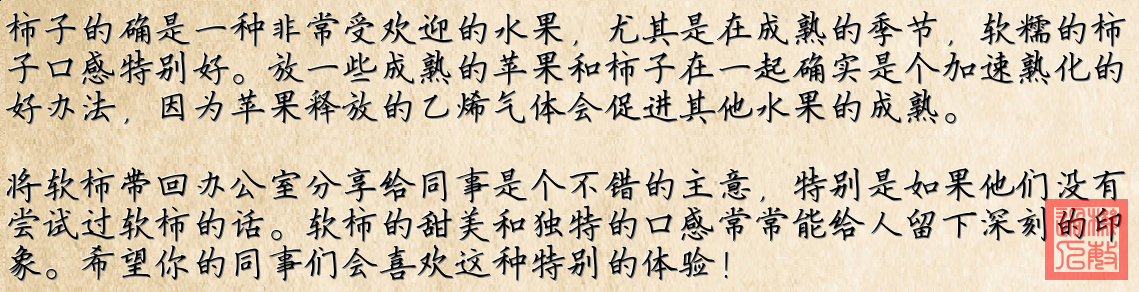 柿子的确是一种非常受欢迎的水果，尤其是在成熟的季节，软糯的柿
子口感特别好。放一些成熟的苹果和柿子在一起确实是个加速熟化的
好办法，因为苹果释放的乙烯气体会促进其他水果的成熟。
将软柿带回办公室分享给同事是个不错的主意，特别是如果他们没有
尝试过软柿的话。软柿的甜美和独特的口感常常能给人留下深刻的印
象。希望你的同事们会喜欢这种特别的体验！